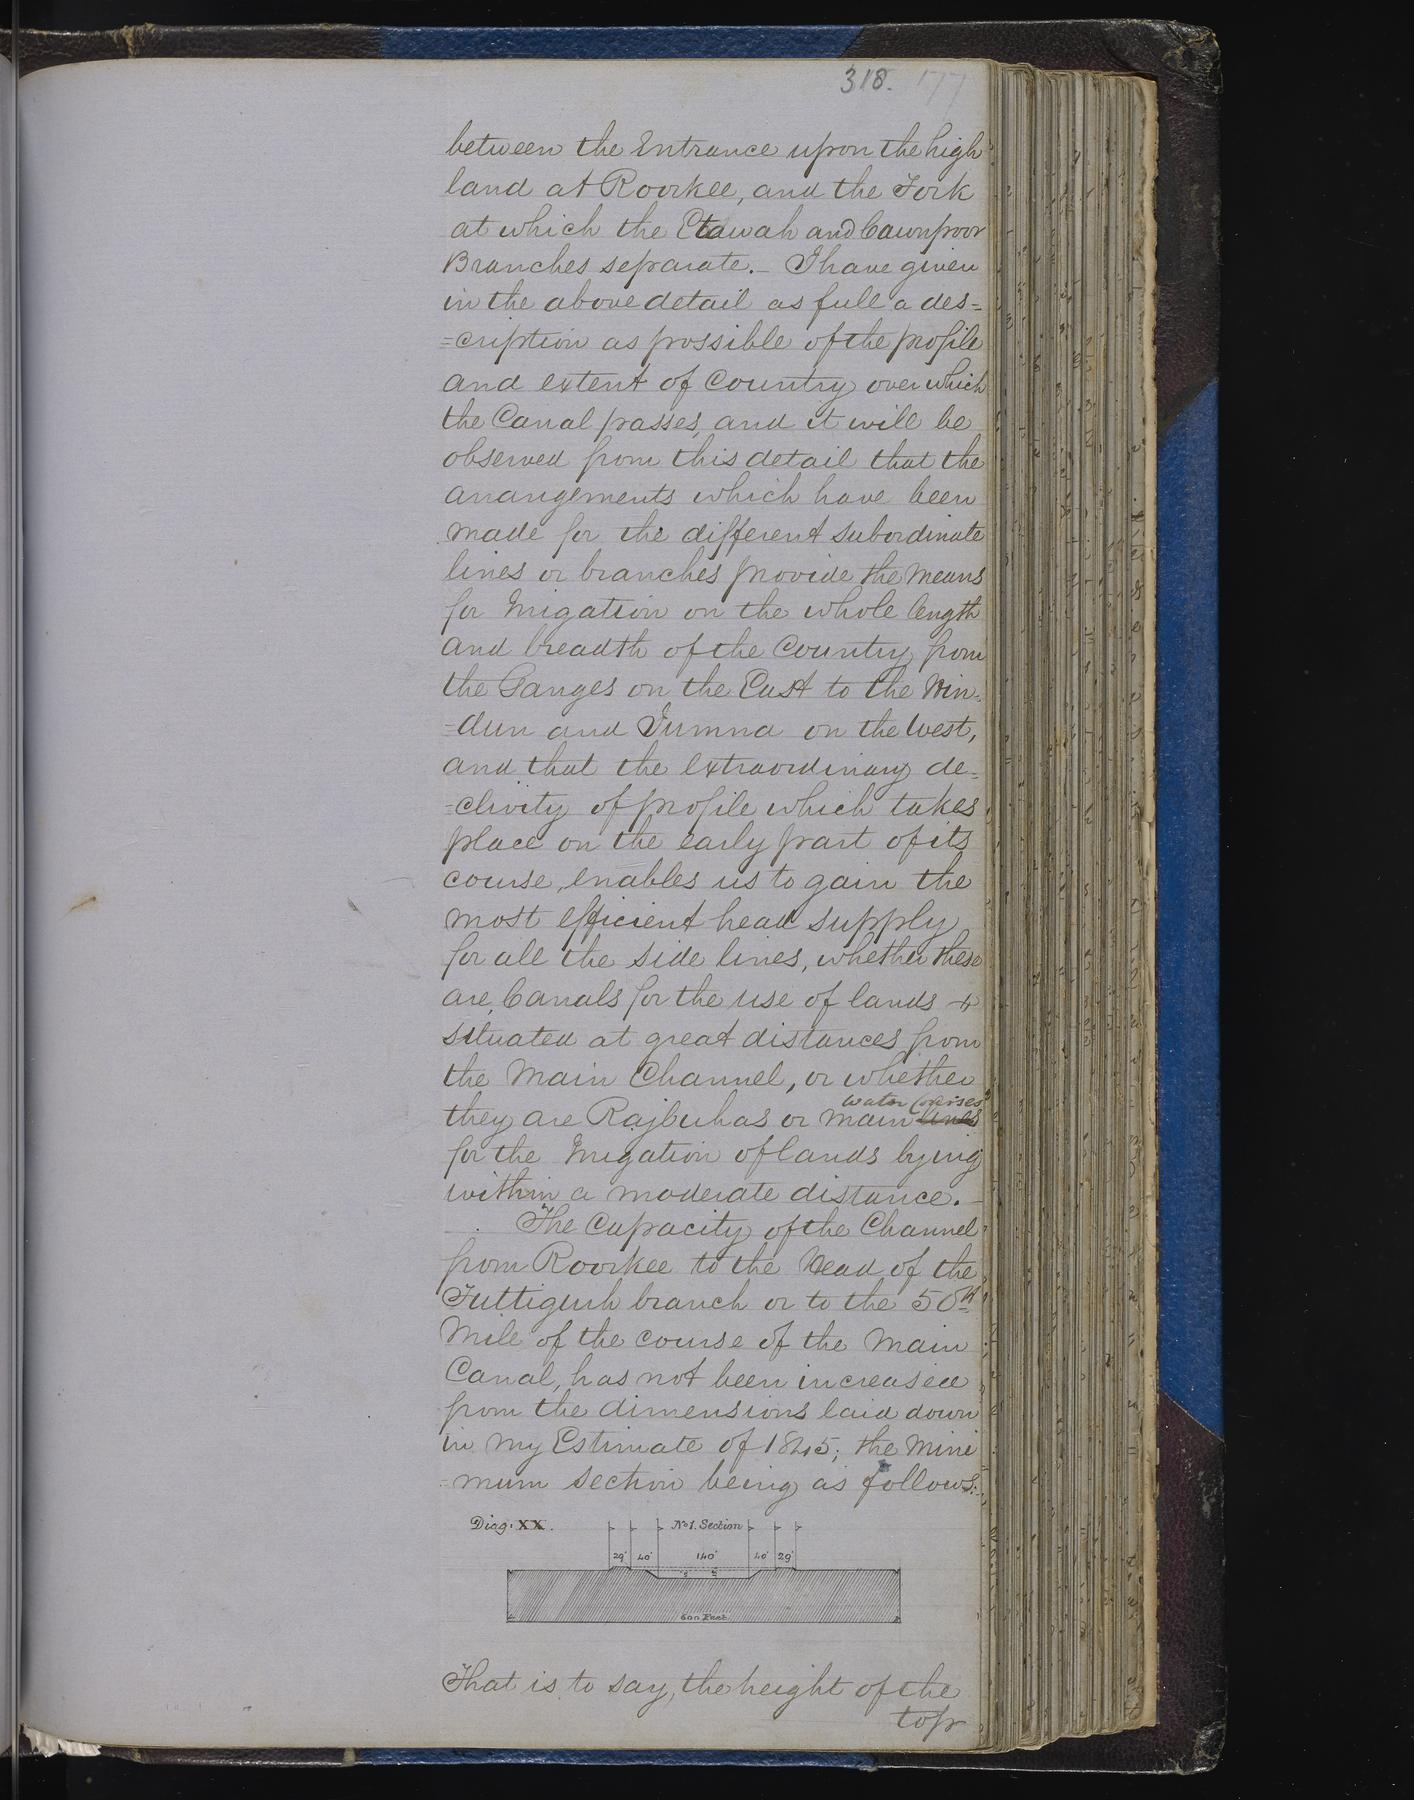 318. 177
between the Entrance upon the high
land at Roorkee, and the Fork
at which the Etawah and Cawnpoor
Branches separate. _ I have given
in the above detail as full a des=
=cription as possible of the profile
and extent of Country over which
the Canal passes, and it will be
observed from this detail that the
arrangements which have been
made for the different subordinate
lines or branches provide the means
for Irrigation on the whole length
and breadth of the Country from
the Ganges on the East to the Hin=
=dun and Jumna on the West,
and that the extraordinary de=
=clivity of profile which takes
place on the early part of its
course, enables us to gain the
most efficient head supply
for all the side lines, whether these
are, Canals for the use of lands +
situated at great distances from
the Main Channel, or whether
water Courses
they are Rajbuhas or main lines
for the Irrigation of lands lying
within a moderate distance. _
The Capacity of the Channel
from Roorkee to the Head of the
Futtigurh branch or to the 50th
Mile of the course of the Main
Canal, has not been increased
from the dimensions laid down
in my Estimate of 1845; the Mini
=mum section being as follows:_
Diag. XX. No 1. Section
29' 40' 140' 40' 29'
600 Feet.
That is to say, the height of the
top